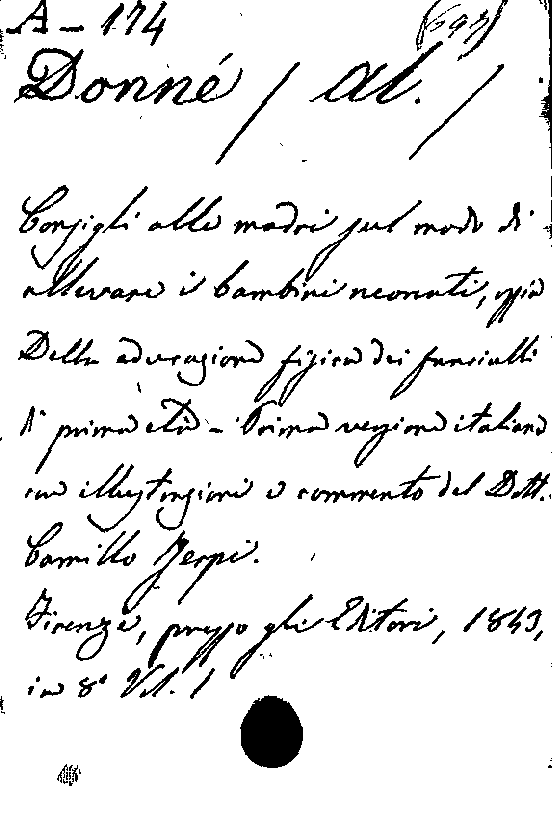 A - 174 (697)
Donné / Al. /
Consigli alle madri sul modo di
allevare i bambini neonati, ossia
Della educazione fisica dei fanciulli
di prima età - Prima versione italiana
con illustrazioni e commento del Dott.
Camillo Serpi.
Firenze, presso gli Editori, 1843,
in 8° Vol. 1